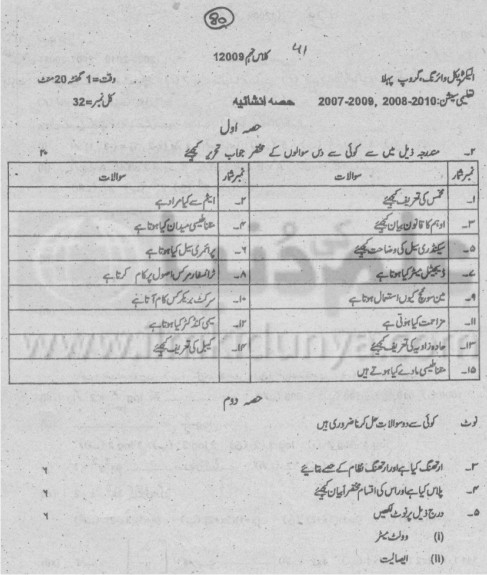 80
41
کلاس نہم 12009
الیکٹریکل وائرنگ، گروپ پہلا
وقت=1 گھنٹہ 20 منٹ
تعلیمی سیشن: 2008-2010, 2007-2009
حصہ انشائیہ
کل نمبر=32
حصہ اول
۲۔ مندرجہ ذیل میں سے کوئی سے دس سوالوں کے مختصر جواب تحریر کیجئے ۲۰
نمبر شمار سوالات نمبر شمار سوالات
۱۔ کی تعریف کیجئے ۲۔ ایٹم سے کیا مراد ہے
۳۔ اوہم کا قانون بیان کیجئے ۴۔ مقناطیسی میدان کیا ہوتا ہے
۵۔ سیکنڈری سیل کی وضاحت کیجئے ۶۔ پرائمری سیل کیا ہوتا ہے
۷۔ ڈیجیٹل میٹر کیا ہوتا ہے ۸۔ ٹرانسفارمر کس اصول پر کام کرتا ہے
۹۔ مین سوئچ کیوں استعمال ہوتا ہے ۱۰۔ سرکٹ بریکر کس کام آتا ہے
۱۱۔ مزاحمت کیا ہوتی ہے ۱۲۔ سیمی کنڈکٹر کیا ہوتا ہے
۱۳۔ حادہ زاویہ کی تعریف کیجئے ۱۴۔ کیبل کی تعریف کیجئے
۱۵۔ مقناطیسی مادے کیا ہوتے ہیں
www. dunya.com
حصہ دوم
نوٹ کوئی سے دو سوالات حل کرنا ضروری ہیں
۳۔ ارتھنگ کیا ہے اور ارتھنگ نظام کے حصے بتائیے ۶
۴۔ پلاس کیا ہے اور اس کی اقسام مختصراً بیان کیجئے ۶
۵۔ درج ذیل پر نوٹ لکھیں ۶
(i) وولٹ میٹر
(ii) ایصالیت